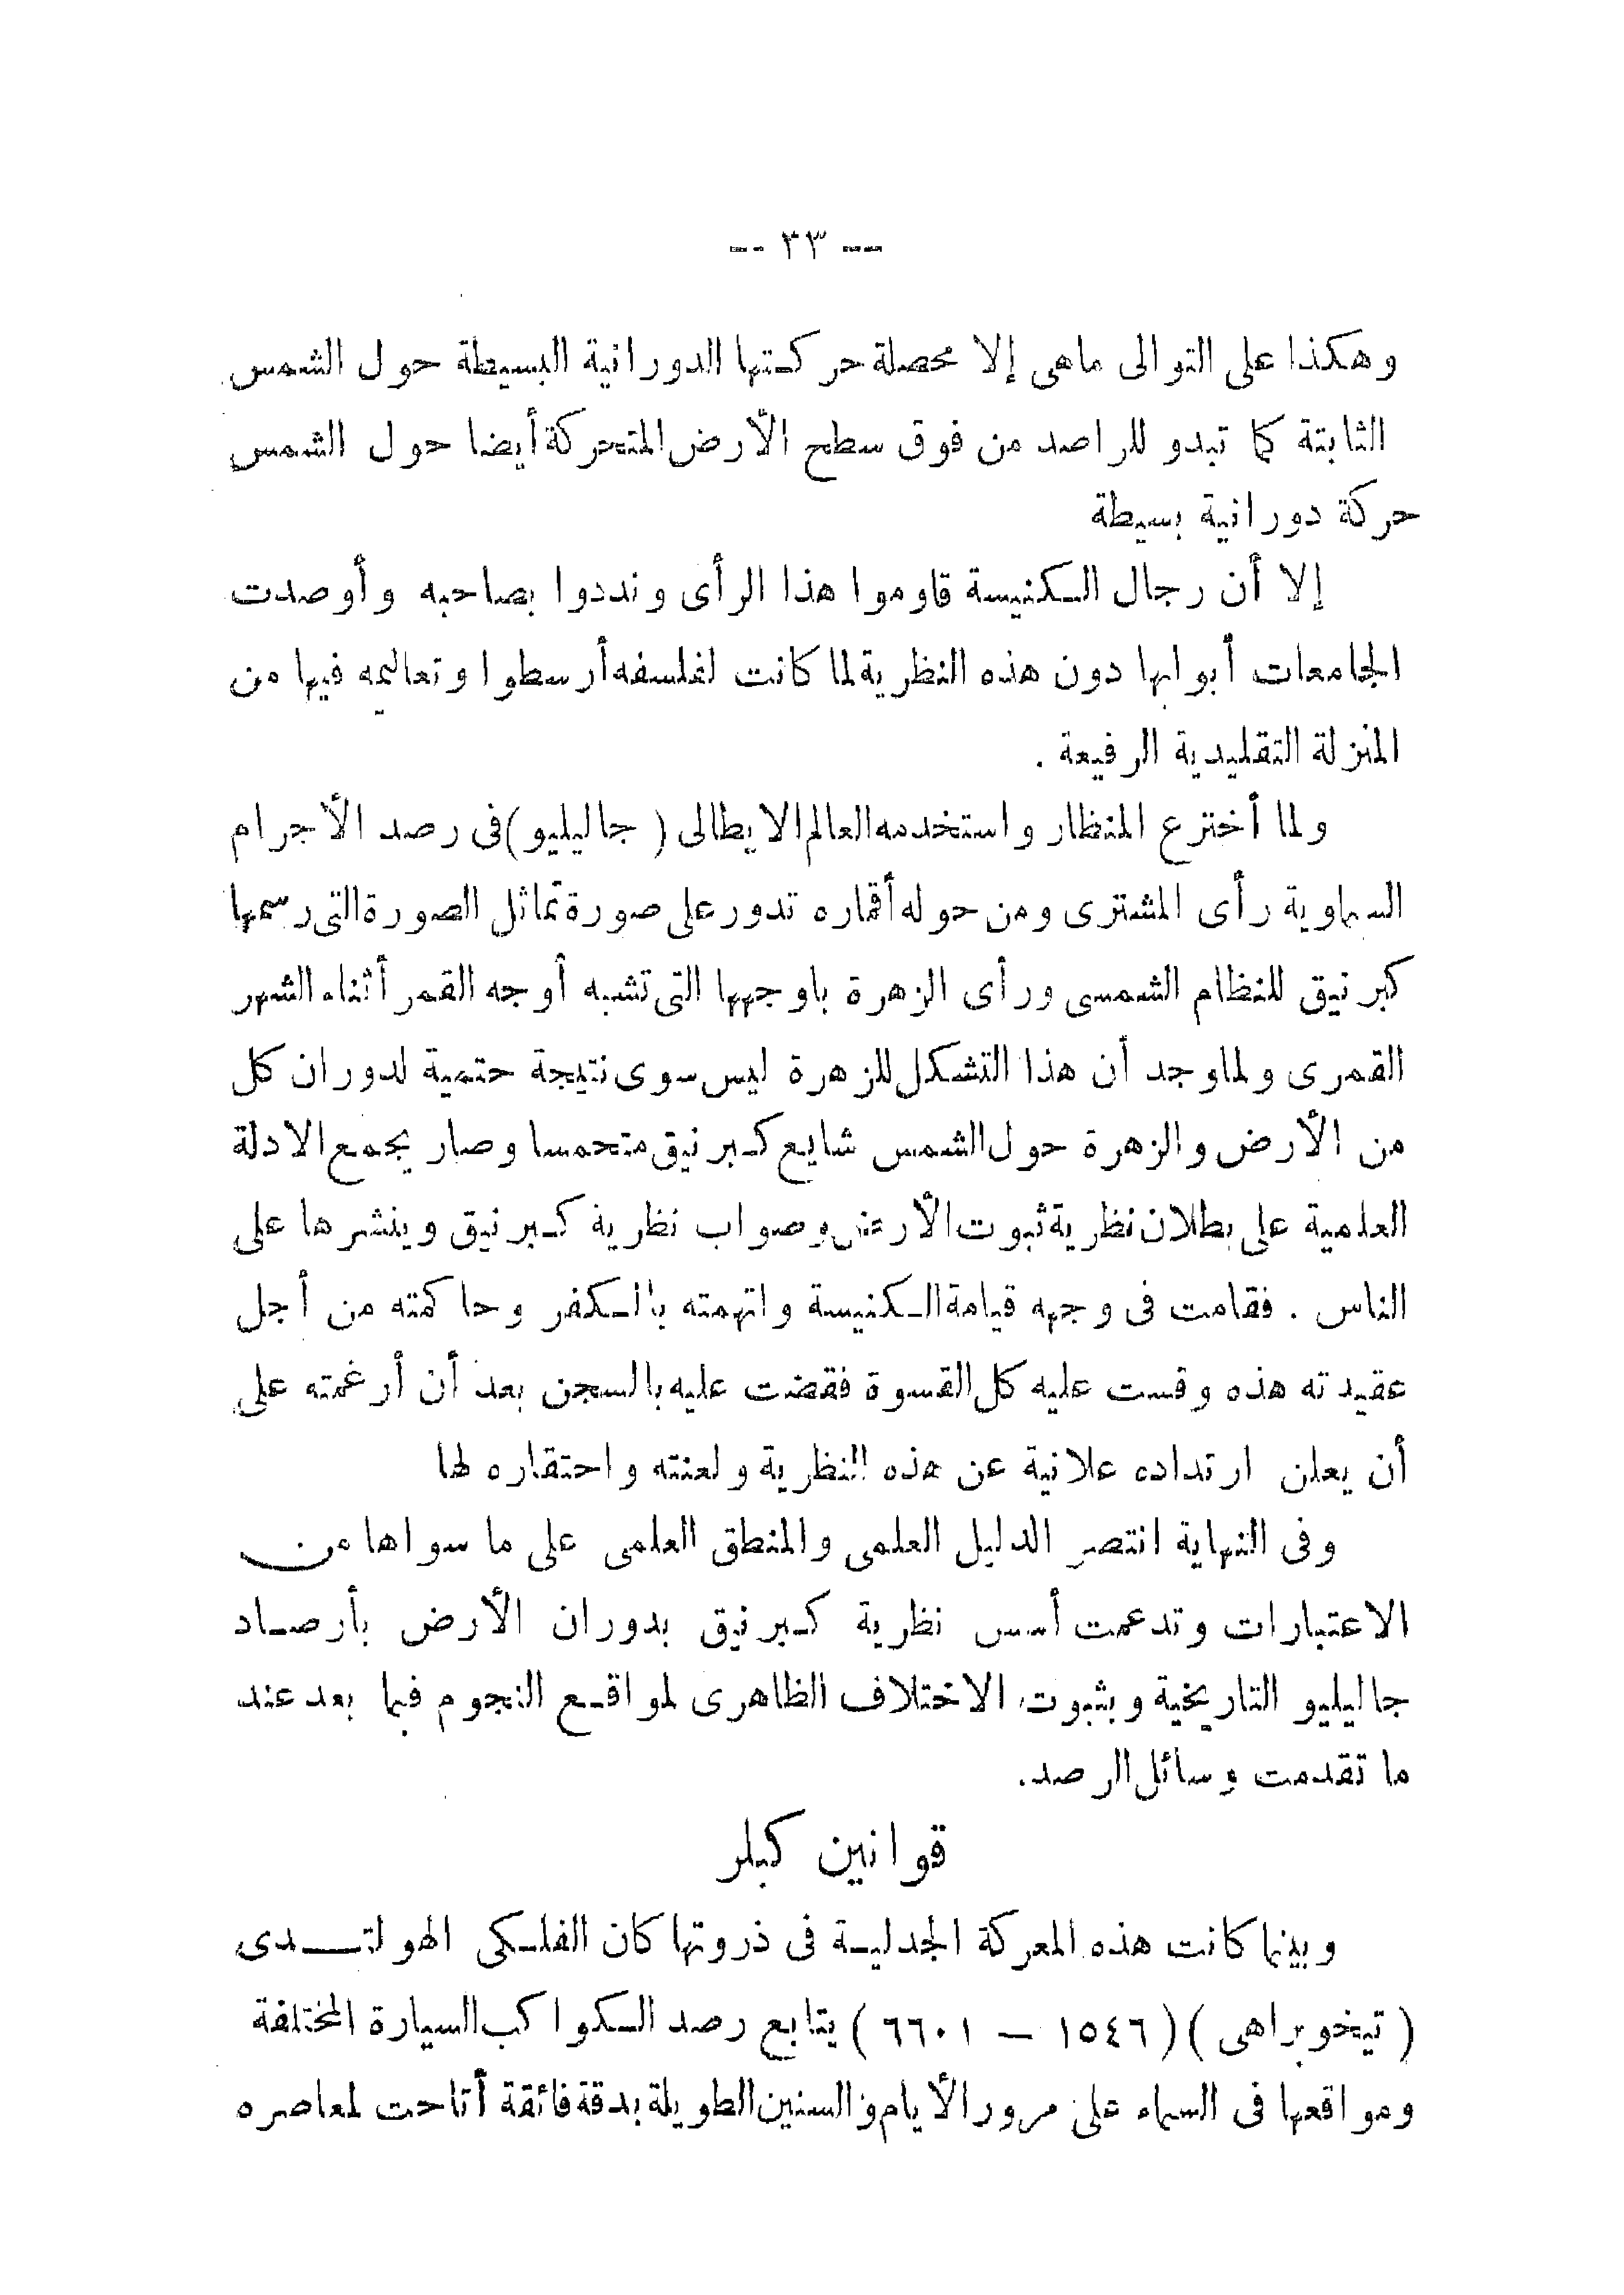 — ٢٣ —
وهكذا على التوالى ماهى إلا محصلة حركتها الدورانية البسيطة حول الشمس
الثابتة كما تبدو للراصد من فوق سطح الأرض المتحركة أيضا حول الشمس
حركة دورانية بسيطة
إلا أن رجال الكنيسة قاوموا هذا الرأى ونددوا بصاحبه وأوصدت
الجامعات أبوابها دون هذه النظرية لما كانت لفلسفه أرسطوا وتعاليمه فيها من
المنزلة التقليدية الرفيعة .
ولما أخترع المنظار واستخدمه العالم الايطالى ( جاليليو ) فى رصد الأجرام
السماوية رأى المشترى ومن حوله أقماره تدور على صورة تماثل الصورة التى رسمها
كبرنيق للنظام الشمسى ورأى الزهرة باوجهها التى تشبه أوجه القمر أثناء الشهر
القمرى ولما وجد أن هذا التشكل للزهرة ليس سوى نتيجة حتمية لدوران كل
من الأرض والزهرة حول الشمس شايع كبرنيق متحمسا وصار يجمع الادلة
العلمية على بطلان نظرية ثبوت الأرض وصواب نظرية كبرنيق وينشرها على
الناس . فقامت فى وجهه قيامة الكنيسة واتهمته بالكفر وحاكمته من أجل
عقيدته هذه وقست عليه كل القسوة فقضت عليه بالسجن بعد أن أرغمته على
أن يعلن ارتداده علانية عن هذه النظرية ولعنته واحتقاره لها
وفى النهاية انتصر الدليل العلمى والمنطق العلمى على ما سواها من
الاعتبارات وتدعمت أسس نظرية كبرنيق بدوران الأرض بأرصاد
جاليليو التاريخية وبثبوت الاختلاف الظاهرى لمواقع النجوم فيما بعد عند
ما تقدمت وسائل الرصد.
قوانين كبلر
وبينما كانت هذه المعركة الجدلية فى ذروتها كان الفلكى الهولندى
( تيخوبراهى ) ( ١٥٤٦ — ٦٦٠١ ) يتابع رصد الكواكب السيارة المختلفة
ومواقعها فى السماء على مرور الأيام والسنين الطويلة بدقة فائقة أتاحت لمعاصره